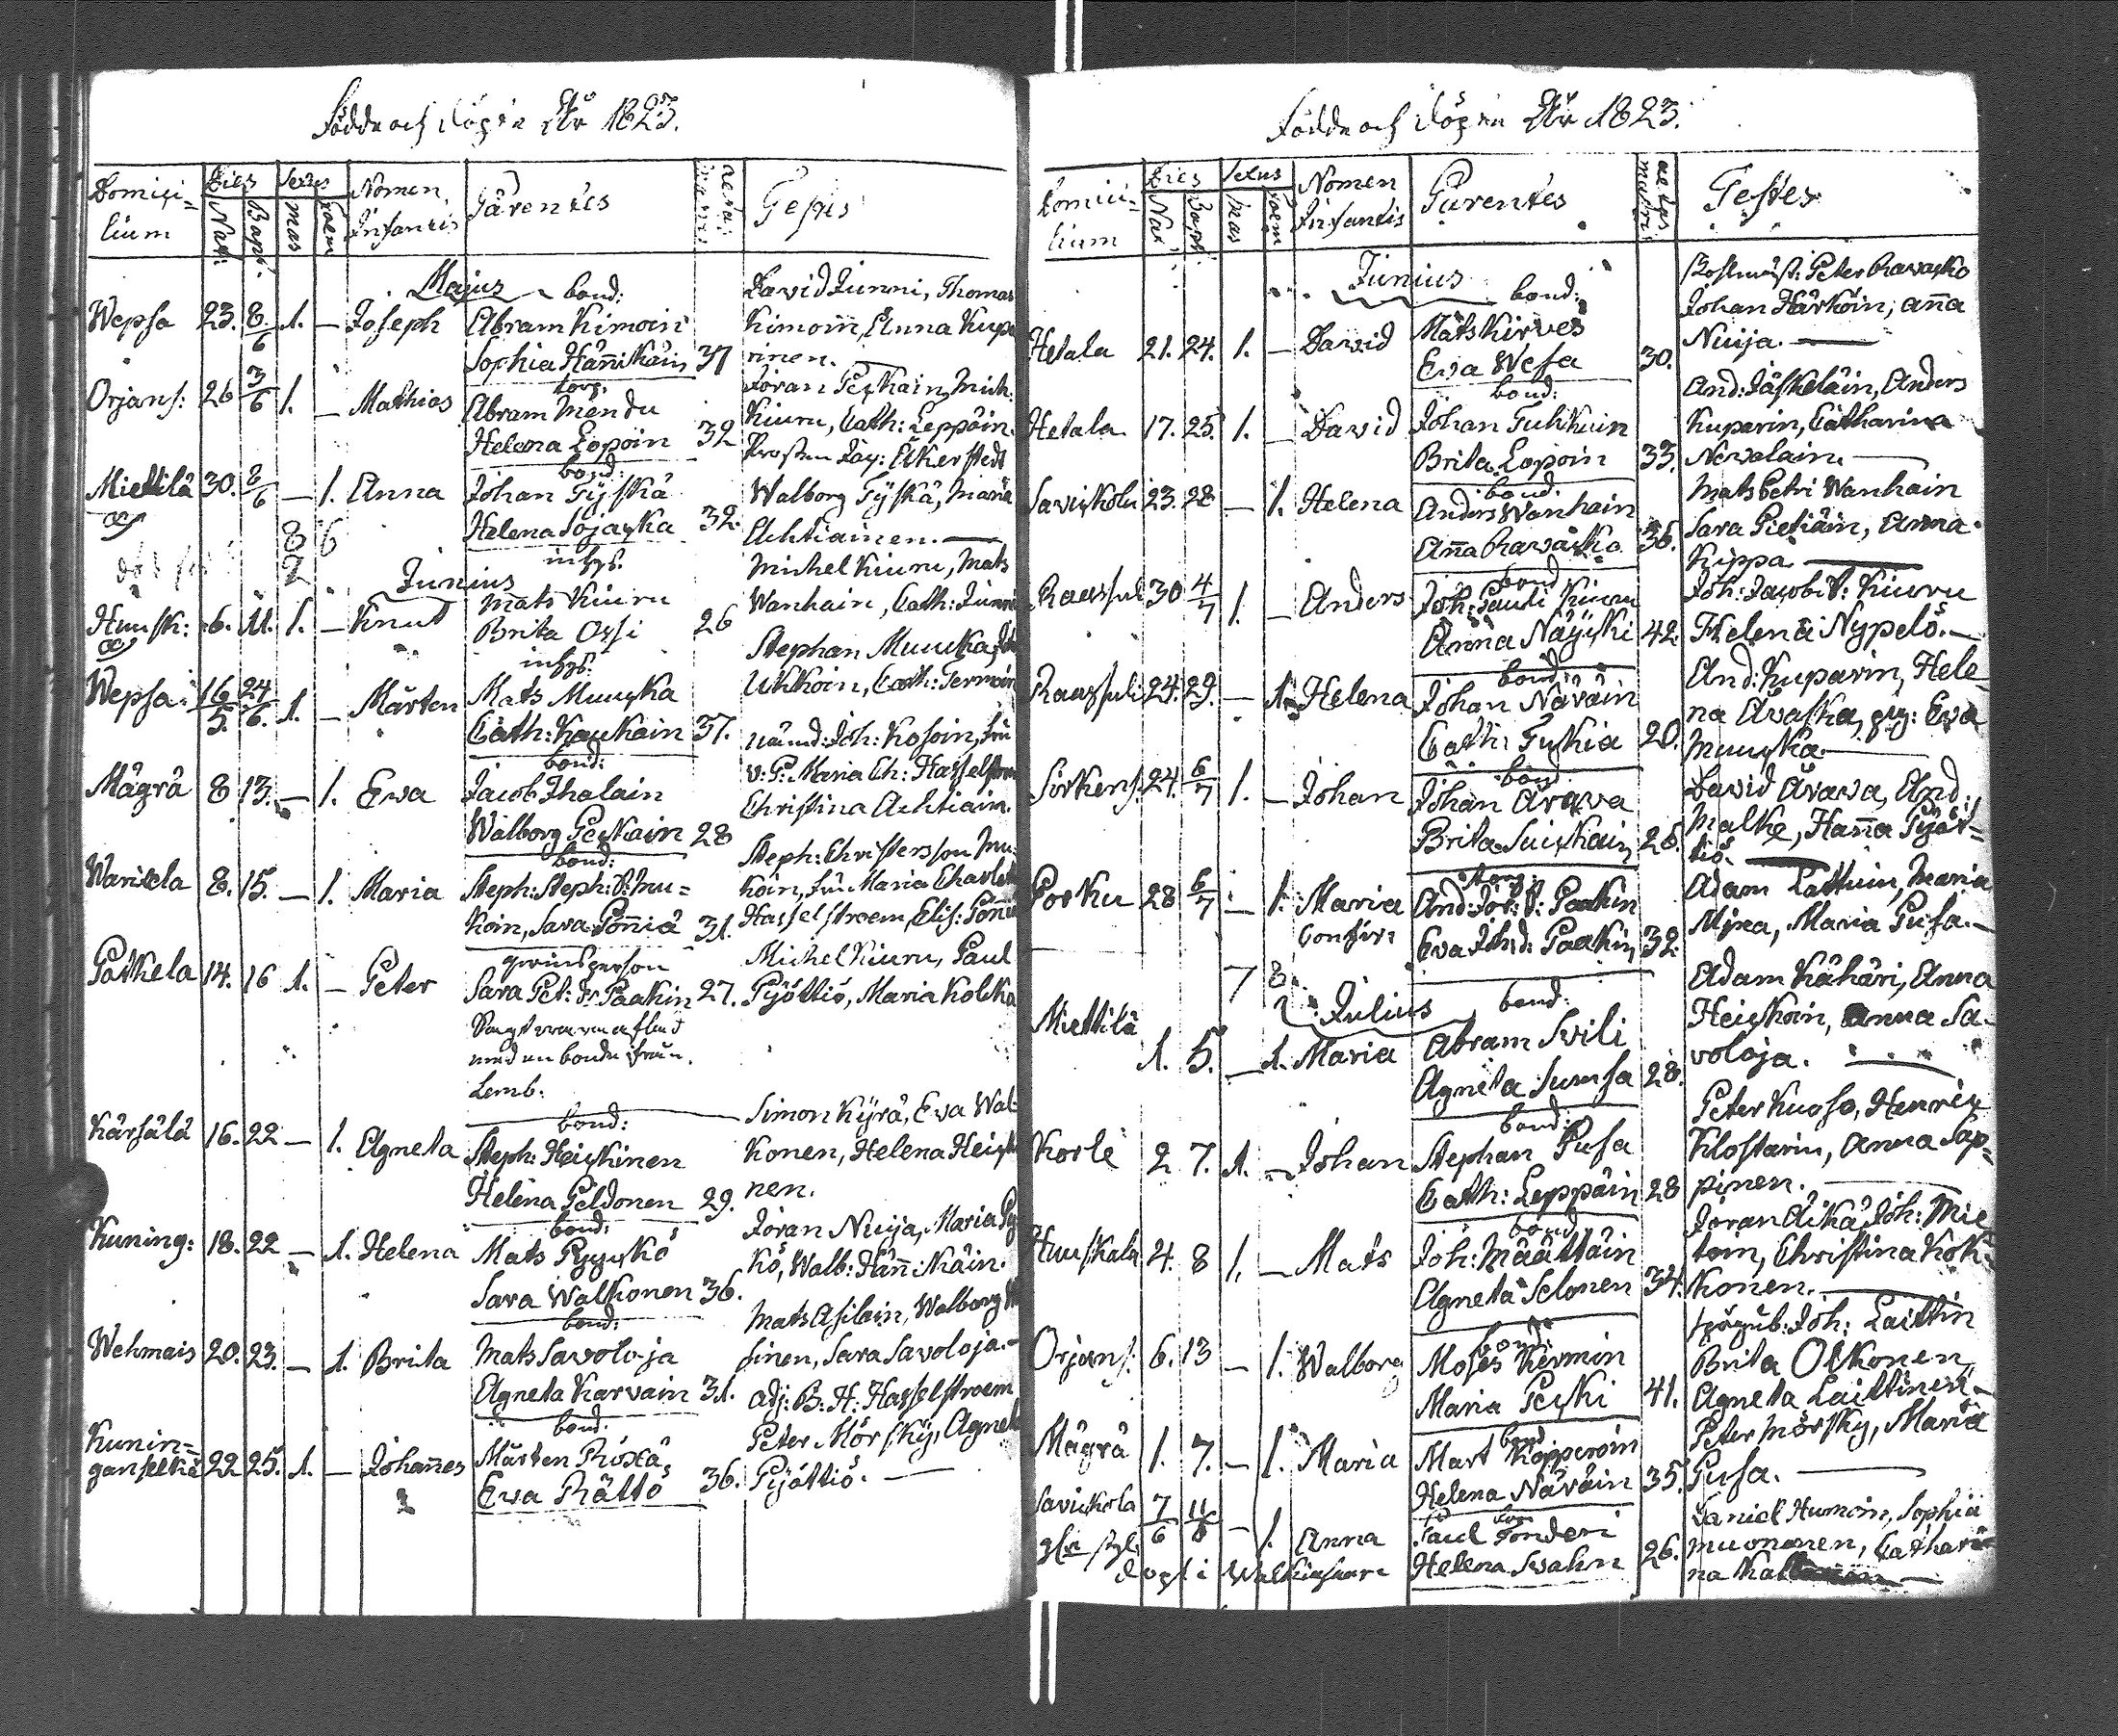 Födde och Döpte År 1823.
Domici-
lium
Dies
Nat:
Bapt:
Sexus
Mas
Foem
Nomen
Infantis
Parentes
Testes
Majus
Wepsa 23. 8/6 1. — Joseph
bond:
Abram Kimoin
Sophia Hännikäin 37
David Junni, Thomas
Kimoin, Anna Kupa
rinen.
Orjans: 26 3/6 1. — Mathias
torp.
Abram Mendu
Helena Lopoin 32
Jöran Peskain, Mich:
Kiuru, Cath: Leppäin.
Miettilä 30. 8/6 — 1. Anna
bond:
Johan Tyskä
Helena Sojacka 32.
Prosten Jac: Åkerstedt
Walborg Tyskä, Maria
Ahtiainen. —
8 6
2
Junius
Huusk: 6. 11. 1. — Knut
inhys.
Mats Kiuru
Brita Ossi 26
Michel Kiuru, Mats
Wanhain, Cath: Junni
Wepsa: 16/5. 24/6. 1. — Mårten
inhys.
Mats Muucka
Cath: Kaukain 37.
Stephan Muucka,
Ukkoin, Cath: Termoin
Mägrä 8 13. — 1. Ewa
bond:
Jacob Ihalain
Walborg Peskain 28
nämd: Joh: Kosoin,
v: P: Maria Ch: Hasselstroem
Christina Achtiain.
Warisela 8. 15. — 1. Maria
bond:
Steph: Steph: S: Mu=
koin, Sara Pönniä 31.
Steph: Christersson Mu-
koin, Maria Charlotta
Hasselstroem, Elis: Pönniä
Patkela 14. 16 1. — Peter
qvinsperson
Sara Pet: dr Paakin 27.
Sagt vara aflad
med en bonde från
Lemb:
Michel Kiuru, Paul
Pyöttiö, Maria Kolcka
Kärsälä 16. 22 — 1. Agneta
bond:
Steph: Heiskinen
Helena Peldonen 29.
Simon Kyrä, Ewa Wal-
konen, Helena Heiski
nen.
Kuning: 18. 22 — 1. Helena
bond:
Mats Pyyckö
Sara Walkonen 36.
Jöran Nuija, Maria Pyy
kö, Walb: Hännikäin.
Wehmais 20. 23. — 1. Brita
bond:
Mats Savoloja
Agneta Karvain 31.
Mats Asilain, Walborg
sinen, Sara Savoloja. —
Kunin=
ganselkä 22 25. 1. — Johannes
bond:
Mårten Röxä,
Ewa Rättö 36.
adj: B: H: Hasselstroem
Peter Mörsky, Agneta
Pyöttiö. —
Födde och Döpte År 1823.
Domici-
lium
Dies
Nat
Bapt
Sexus
Mas
Foem
Nomen
Infantis
Parentes
aetas
matris
Testes
Junius
Hetala 21. 24. 1. — David
bond:
Mats Kirves
Ewa Wesa 30.
Peter Rawasko
Johan Härköin, Anna
Nuija. —
Hetala 17. 25. 1. — David
bond:
Johan Tuhkuin
Brita Lopoin 33.
And: Jäskeläin, Anders
Kuparin, Catharina
Newalain. —
Saviskolu 23. 28 — 1. Helena
bond.
Anders Wanhain
Anna Rawasko 36.
Mats Petri Wanhain
Sara Pietiäin, Anna
Kippa. —
30 4/7 1. — Anders
bond
Joh: Pauli Kiuru
Anna Näyski 42.
Joh: Jacobi S: Kiuru
Helena Nypelö. —
24. 29. — 1. Helena
bond:
Johan Näväin
Cath: Tuskia 20.
And: Kuparin, Hele
na Awaska, Ewa
Muucka. —
Sirkens: 24. 6/7 1. — Johan
bond:
Johan Arawa
Brita Suiskain 28.
David Arawa, And:
Malke, Hanna Pyöt-
tiö. —
Porku 28 6/7 — 1. Maria
And: Jör: S: Paakin
Ewa Joh: d: Paakin 32
Adam Lattuin, Maria
Myra, Maria Pusa. —
7 8.
Julius
Miettilä
1. 5. — 1. Maria
bond.
Abram Svili
Agneta Sumsa 28.
Adam Kähäri, Anna
Heiskoin, Anna Sa-
voloja.
Korle 2 7. 1. — Johan
bond:
Stephan Pusa
Cath: Leppäin 28
Peter Kuoso, Henric
Klostarin, Anna Sap-
pinen. —
Huuskala 4. 8 1. — Mats
bond
Joh: Määttäin
Agneta Selonen 34.
Jöran Äikä, Joh: Mie
toin, Christina Kok-
konen. —
Orjans: 6. 13 — 1. Walborg
bond:
Moses Kermin
Maria Pecki 41.
Joh: Laittin
Brita Olkonen,
Agneta Laittinen. —
Mägrä 1. 7. — 1. Maria
bond
Mart Kopperoin
Helena Näväin 35.
Peter Mörsky, Maria
Pusa. —
Saviskola 7/6 11/6 — 1. Anna
Paul Tonderi
Helena Swahn 26.
Daniel Humoin, Sophia
Muononen, Catharii
na